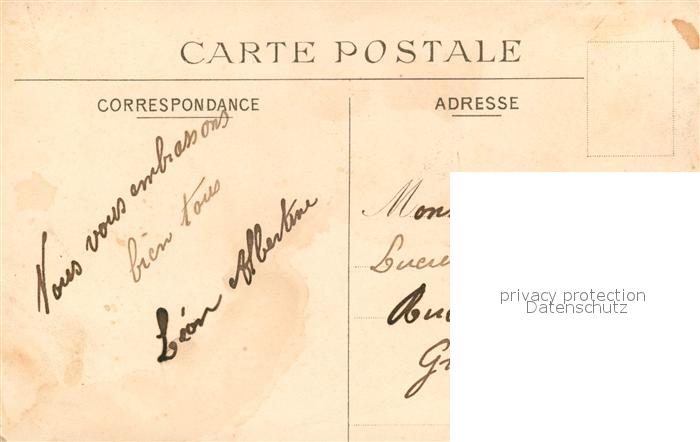 CARTE POSTALE
CORRESPONDANCE
ADRESSE
Nous vous embrassons
bien tous
Léon Albertine
Mons
Lucie
Rue
Gr
privacy protection
Datenschutz